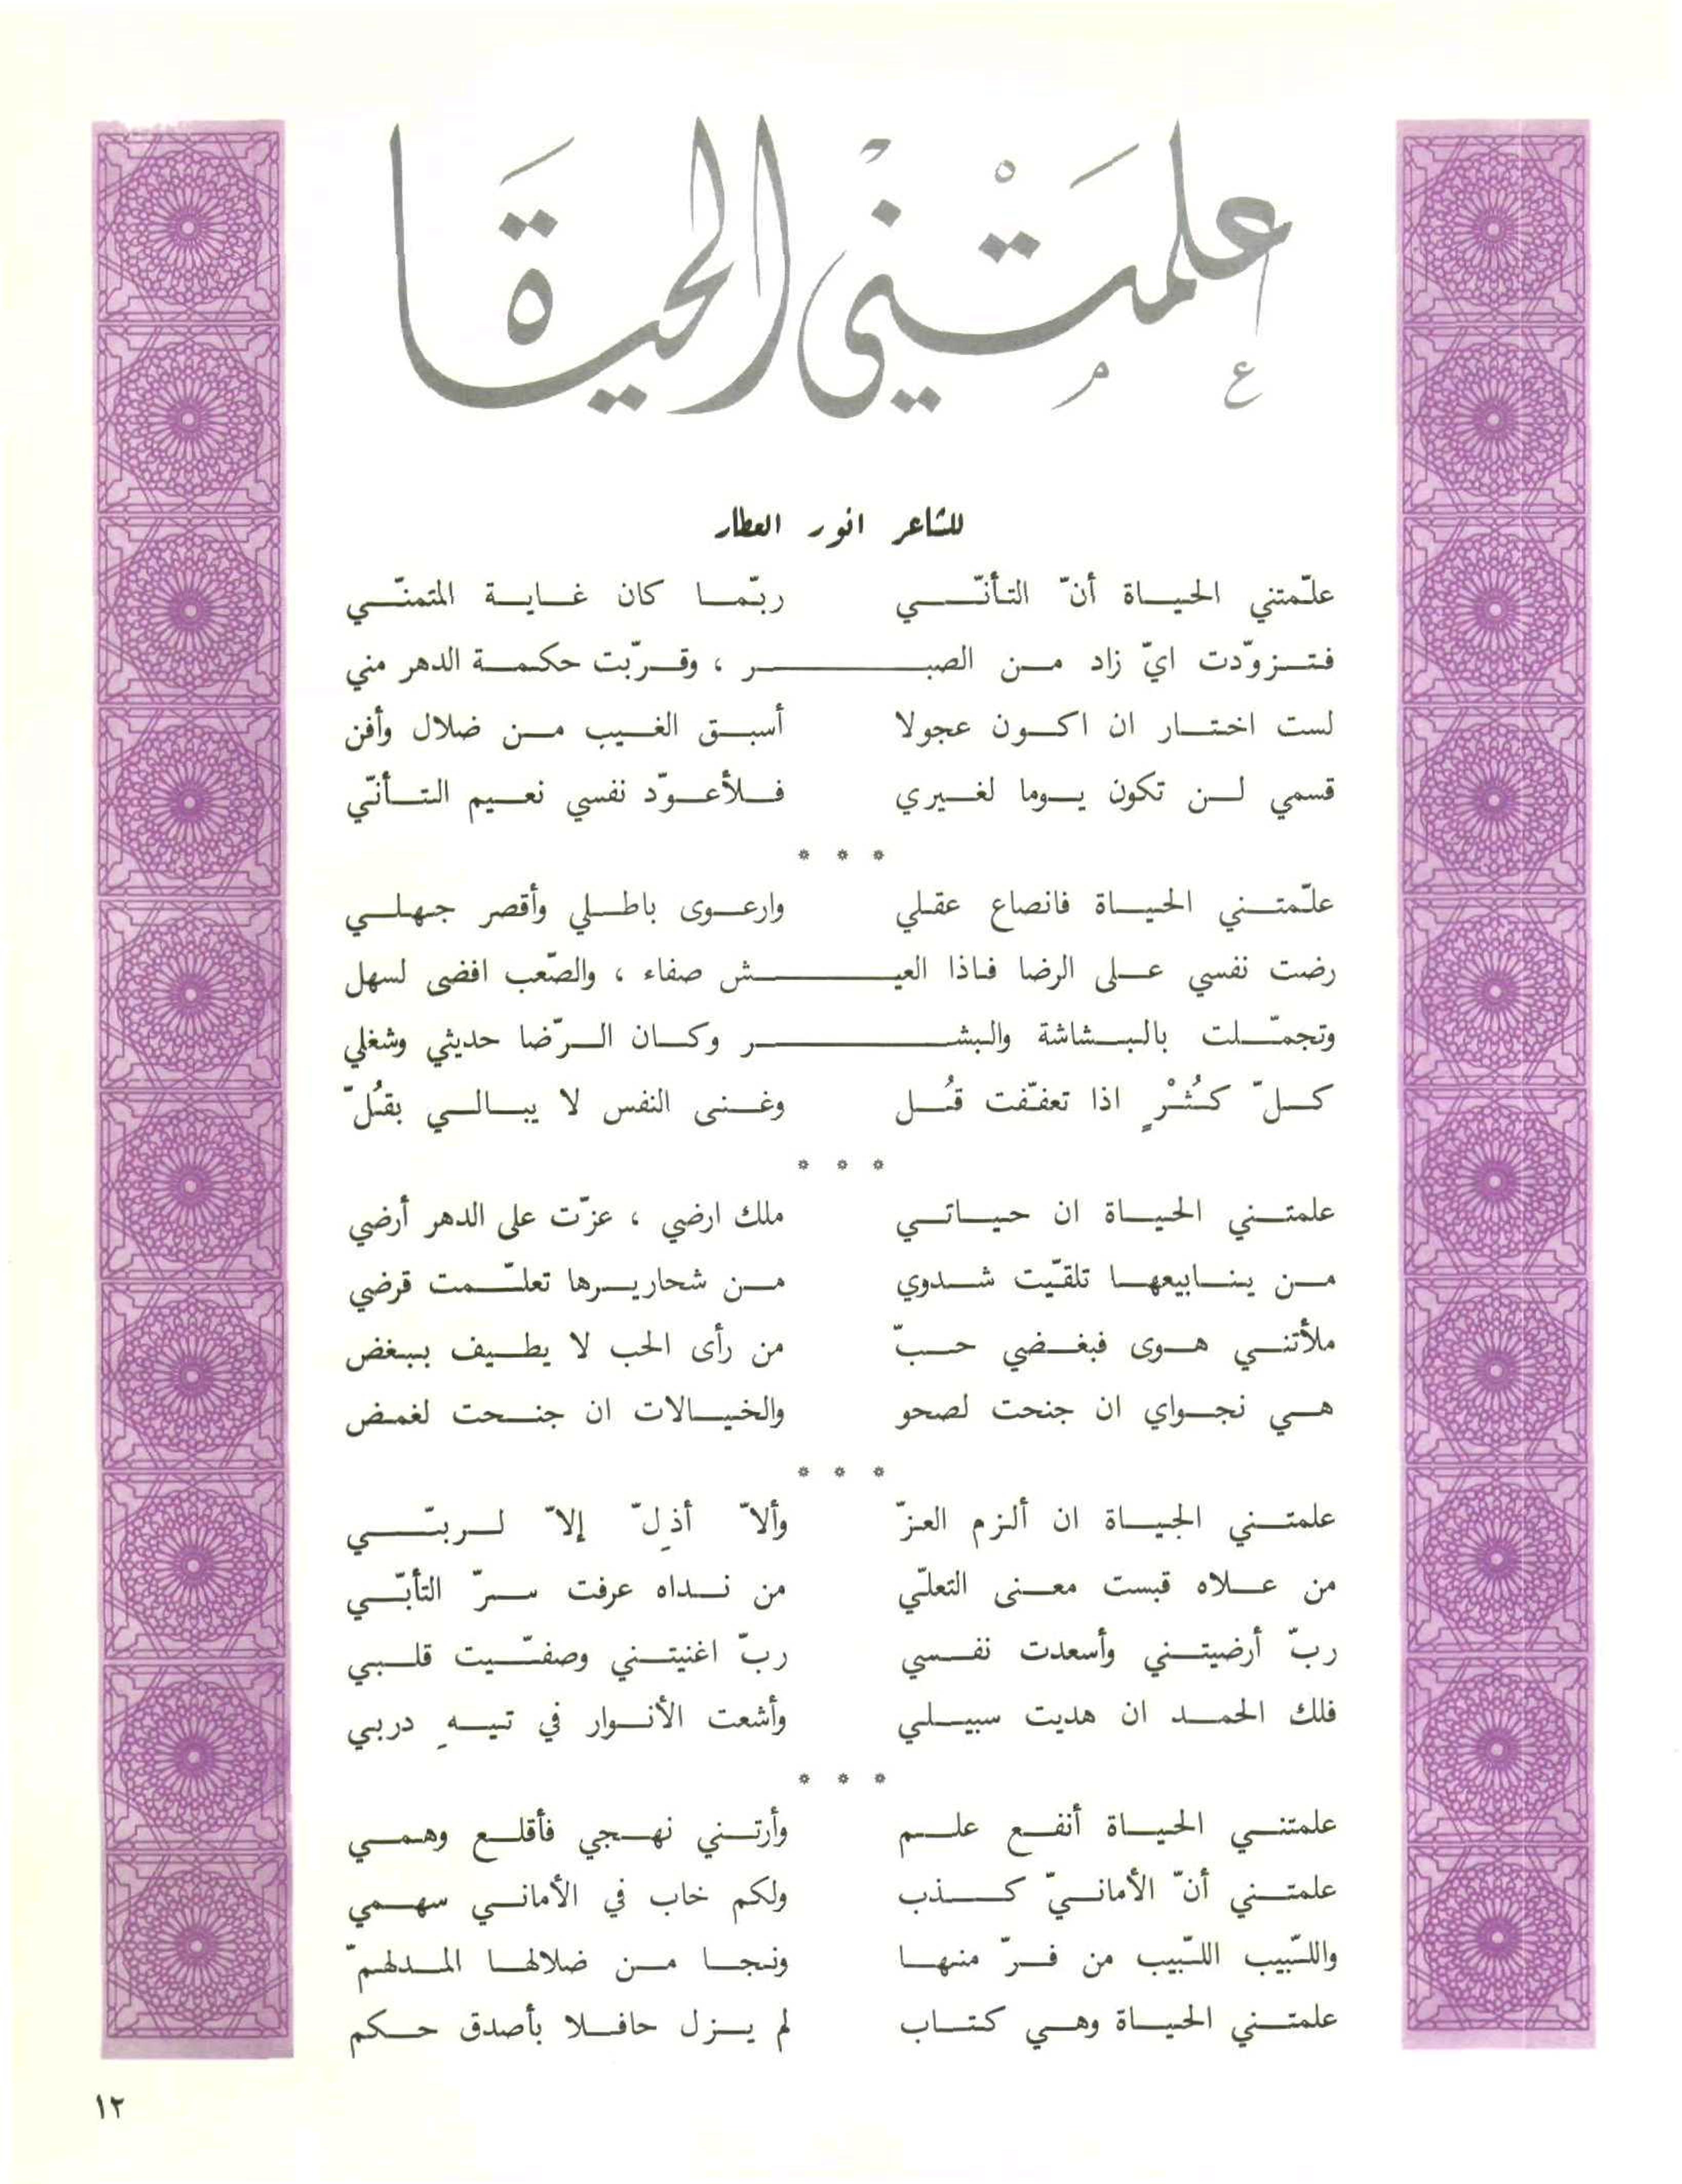 علمتني الحياة
للشاعر انور العطار
علّمتني الحياة أنّ التأنّي ربّما كان غاية المتمنّي
فتزوّدت ايّ زاد من الصبر ، وقرّبت حكمة الدهر مني
لست اختار ان اكون عجولا أسبق الغيب من ضلال وأفن
قسمي لن تكون يوما لغيري فلأعوّد نفسي نعيم التأنّي
* * *
علّمتني الحياة فانصاع عقلي وارعوى باطلي وأقصر جهلي
رضت نفسي على الرضا فاذا العيش صفاء ، والصّعب افضى لسهل
وتجمّلت بالبشاشة والبشر وكان الرّضا حديثي وشغلي
كلّ كُثْرٍ اذا تعفّفت قُل وغنى النفس لا يبالي بقُلّ
* * *
علمتني الحياة ان حياتي ملك ارضي ، عزّت على الدهر أرضي
من ينابيعها تلقّيت شدوي من شحاريرها تعلّمت قرضي
ملأتني هوى فبغضي حبّ من رأى الحب لا يطيف ببغض
هي نجواي ان جنحت لصحو والخيالات ان جنحت لغمض
* * *
علمتني الحياة ان ألزم العزّ وألاّ أذِلّ إلاّ لربّي
من علاه قبست معنى التعلّي من نداه عرفت سرّ التأبّي
ربّ أرضيتني وأسعدت نفسي ربّ اغنيتني وصفّيت قلبي
فلك الحمد ان هديت سبيلي وأشعت الأنوار في تيهِ دربي
* * *
علمتني الحياة أنفع علم وأرتني نهجي فأقلع وهمي
علمتني أنّ الأمانيّ كذب ولكم خاب في الأماني سهمي
واللّبيب اللّبيب من فرّ منها ونجا من ضلالها المدلهمّ
علمتني الحياة وهي كتاب لم يزل حافلا بأصدق حكم
١٢